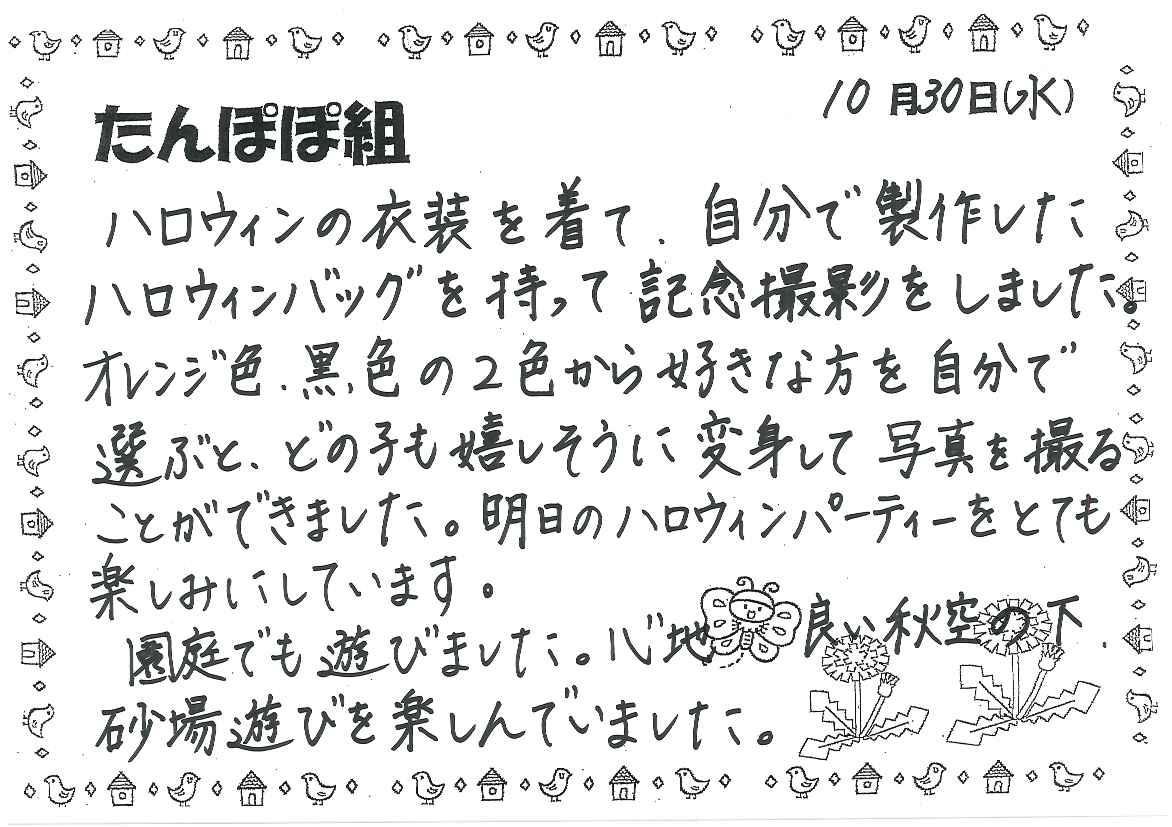 10月30日(水)
たんぽぽ組
ハロウィンの衣装を着て、自分で製作した
ハロウィンバッグを持って記念撮影をしました。
オレンジ色、黒色の2色から好きな方を自分で
選ぶと、どの子も嬉しそうに変身して写真を撮る
ことができました。明日のハロウィンパーティーをとても
楽しみにしています。
園庭でも遊びました。心地良い秋空の下、
砂場遊びを楽しんでいました。